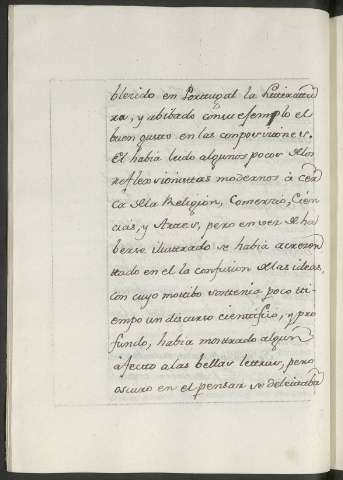 blecido en Portugal la Litteratu
ra, y abibado con su efemplo el
buen gusto en las conposiciones.
El habia leido algunos pocos de los
reflexsionistas modernos à cer
ca de la Religion, Comersio, Cien
cias, y Artes, pero en ver de ha
berse ilustrado se habia acresen
ttado en el la confusion de las ideas,
con cuyo mottibo sostenia poco tti
empo un discurso cientifico, y pro
fundo, habia mosttrado algun
afecto a las bellas lettras, pero
oscuro en el pensar se deleitaba